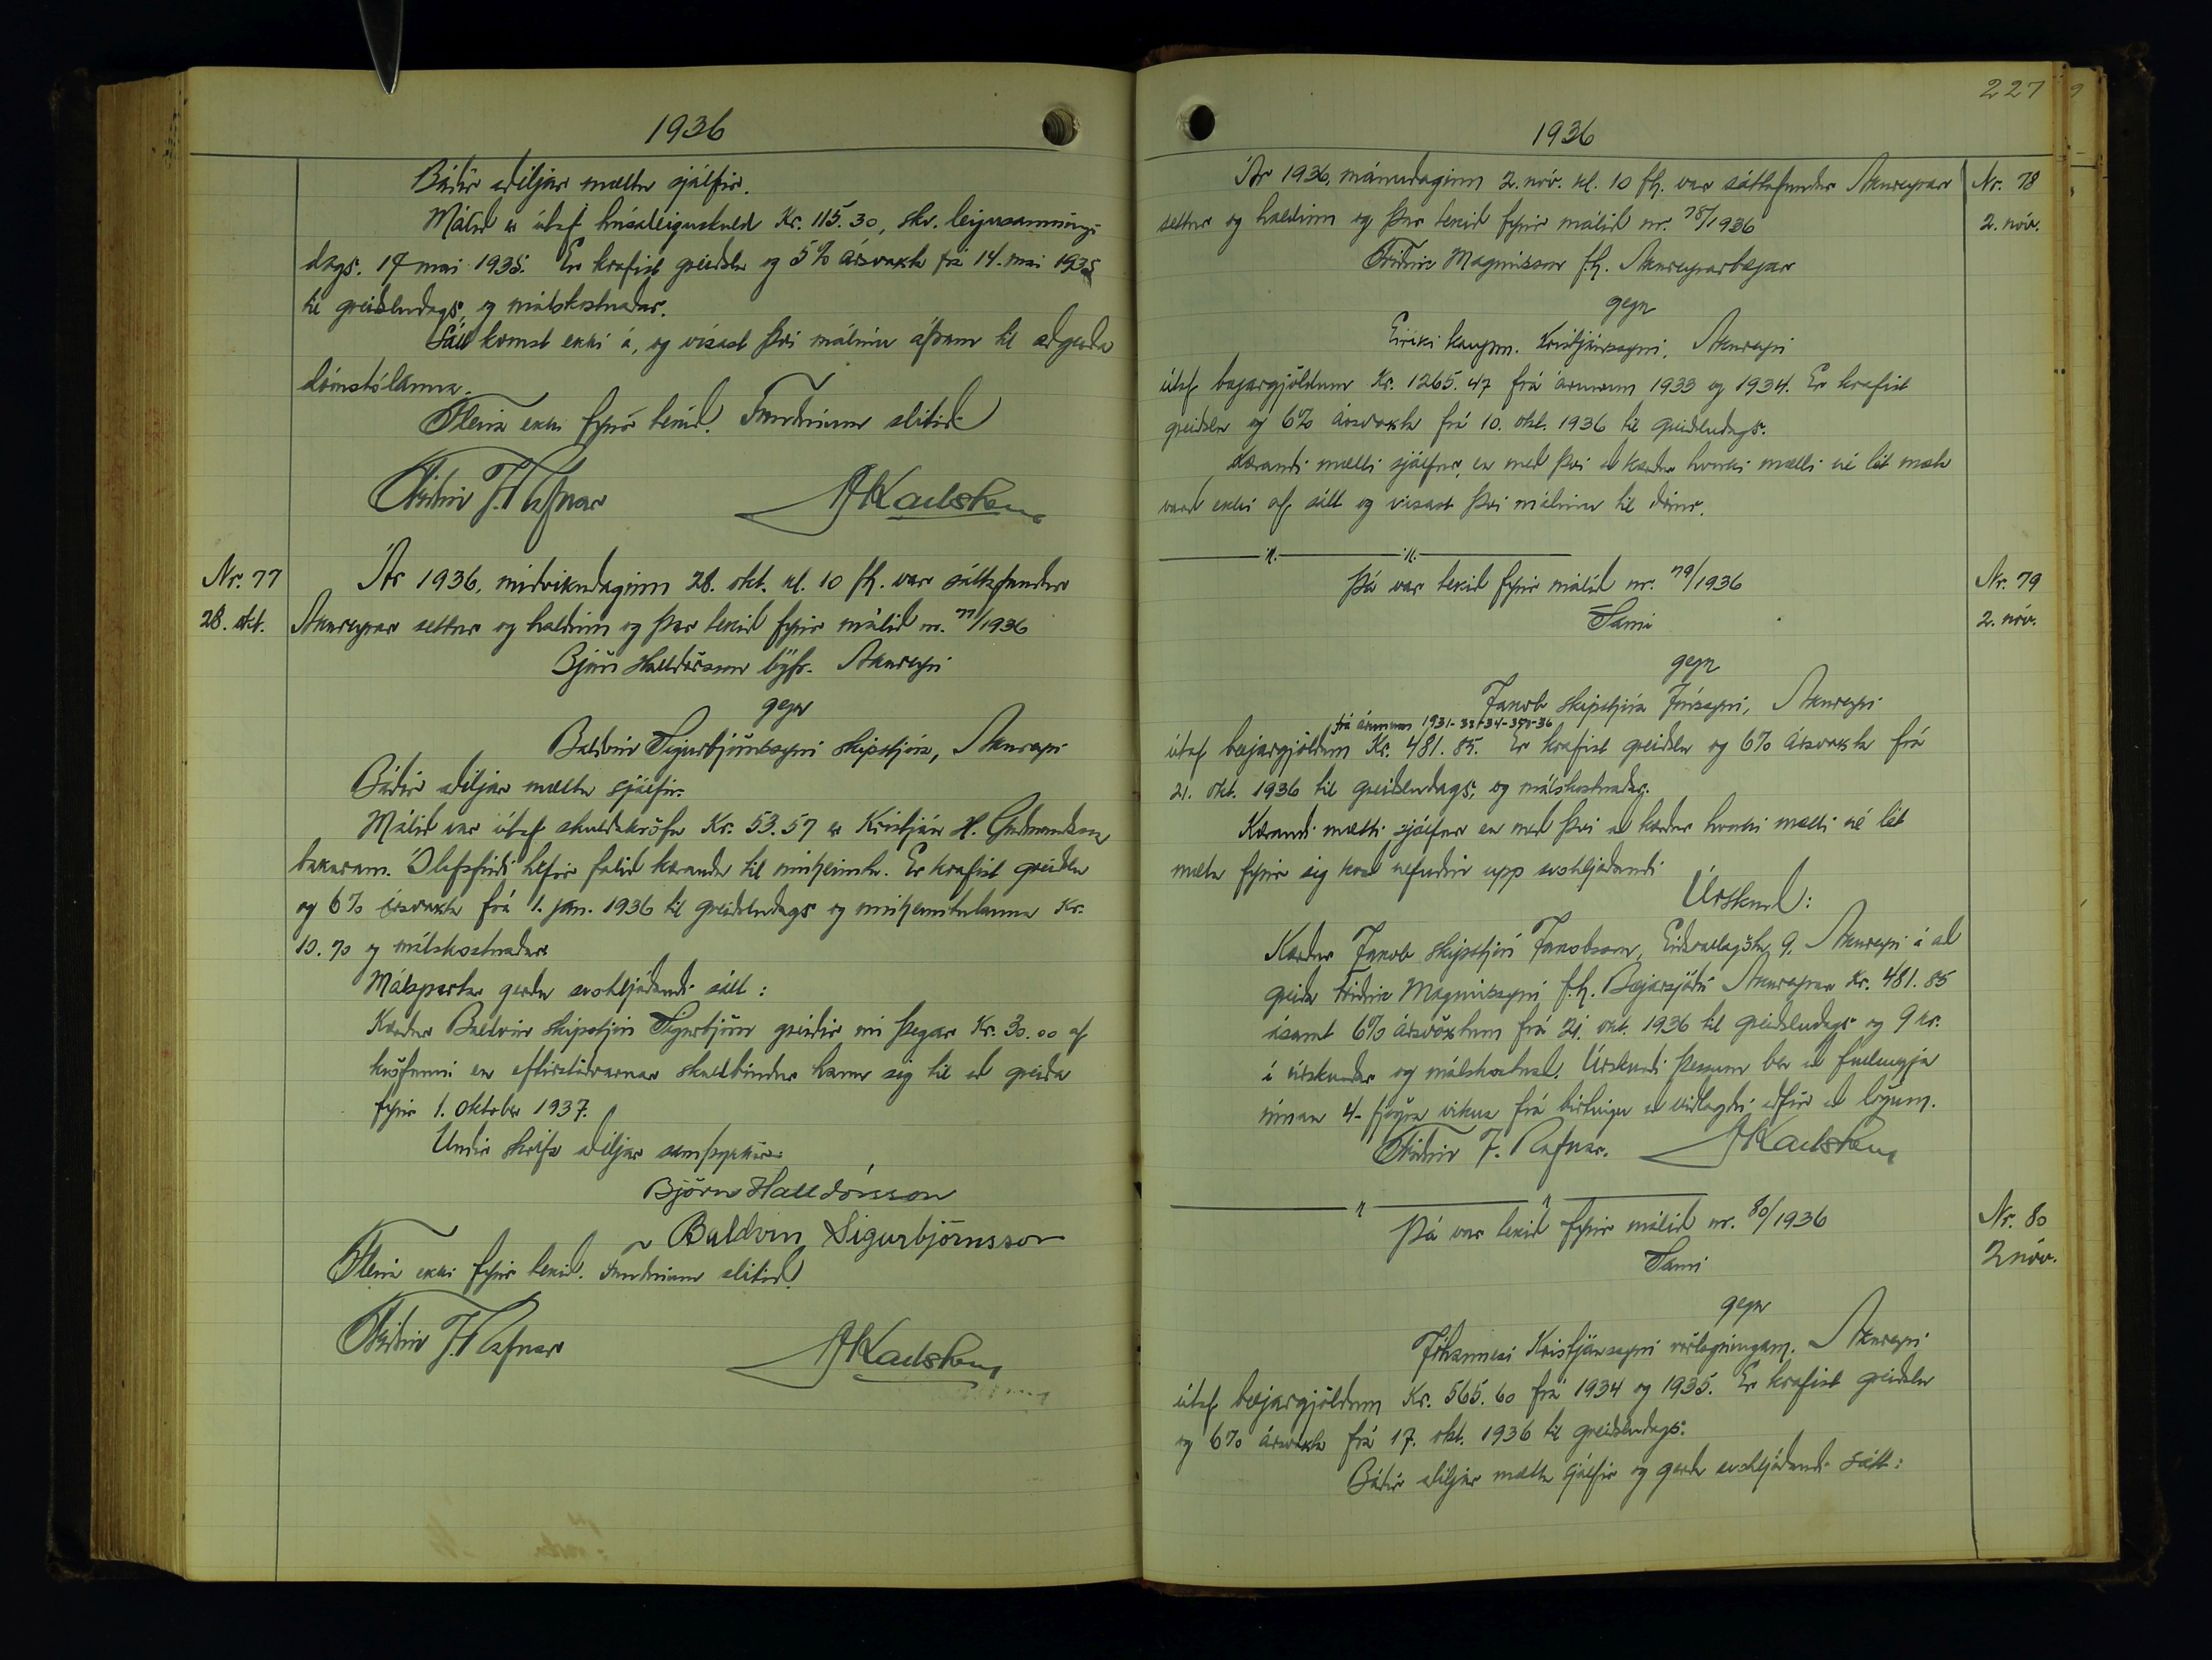 1936
Báðir aðiljar mættu sjálfir.
Málið er útaf húsaleiguskuld Kr. 115.30, skv. leigusamning-
dags. 14 mai 1935. Er krafist greiðslu og 5% ársvaxta frá 14. mai 1935
til greiðsludags, og málskostnaðar.
Sátt komst ekki á, og vísast því málinu áfram til aðgerða
dómstólanna.
Fleira ekki fyrir tekið. Fundinum slitið
Friðrik J. Rafnar A Karlsson
Nr. 77
28. okt.
Ár 1936, miðvikudaginn 28. okt. kl. 10 fh. var sáttafundur
Akureyrar settur og haldinn og þar tekið fyrir málið nr. 77/1936
Björn Halldórsson lögfr. Akureyri
gegn
Baldvin Sigurbjörnssyni skipstjóra, Akureyri
Báðir aðiljar mættu sjálfir.
Málið var útaf skuldakröfu Kr. 53.57 er Kristján H. Guðmundsson
bakaram. Ólafsfirði hefir falið kæranda til innheimtu. Er krafist greiðslu
og 6% ársvaxta frá 1. jan. 1936 til greiðsludags og innheimtulauna Kr.
10.70 og málskostnaðar
Málspartar gerðu svohljóðandi sátt:
Kærður Baldvin skipstjóri Sigurbjörns greiðir nú þegar Kr. 30.00 af
kröfunni en eftirstöðvarnar skuldbindur hann sig til að greiða
fyrir 1. október 1937.
Undir skrifa aðiljar samþykkir:
Björn Halldórsson
Baldvin Sigurbjörnsson
Fleira ekki fyrir tekið. Fundinum slitið.
Friðrik J. Rafnar A Karlsson
227
1936
Ár 1936, mánudaginn 2. nóv. kl. 10 fh. var sáttafundur Akureyrar
settur og haldinn og þar tekið fyrir málið nr. 78/1936
Nr. 78
2. nóv.
Friðrik Magnússon f.h. Akureyrarbæjar
gegn
Eiríki kaupm. Kristjánssyni, Akureyri
útaf bæjargjöldum Kr. 1265.47 frá árunum 1933 og 1934. Er krafist
greiðslu og 6% ársvaxta frá 10. okt. 1936 til greiðsludags.
Kærandi mætti sjálfur, en með því að kærður hvorki mætti né lét mæta
varð ekki af sátt og vísast því málinu til dóms.
Þá var tekið fyrir málið nr. 79/1936
Nr. 79
2. nóv.
Sami
gegn
Jakob skipstjóra Jónssyni, Akureyri
frá árunum 1931-33-34-35-36
útaf bæjargjöldum Kr. 481.85. Er krafist greiðslu og 6% ársvaxta frá
21. okt. 1936 til greiðsludags, og málskostnaðar.
Kærandi mætti sjálfur en með því að kærður hvorki mætti né lét
mæta fyrir sig kvað nefndin upp svohljóðandi
Úrskurð:
Kærður Jakob skipstjóri Jakobsson, 9. Akureyri á að
greiða Friðrik Magnússyni f.h. Bæjarsjóðs Akureyrar Kr. 481.85
ásamt 6% ársvöxtum frá 21. okt. 1936 til greiðsludags og 9 kr.
í úrskurðar og málskostnað. Úrskurði þessum ber að fullnægja
innan 4- fjögra vikna frá birtingu að viðlagðri aðför að lögum.
Friðrik J. Rafnar. A Karlsson
Þá var tekið fyrir málið nr. 80/1936
Nr. 80
2 nóv.
Sami
gegn
Jóhannesi Kristjánssyni Akureyri
útaf bæjargjöldum Kr. 565.60 frá 1934 og 1935. Er krafist greiðslu
og 6% ársvaxta frá 17. okt. 1936 til greiðsludags.
Báðir aðiljar mættu sjálfir og gerðu svohljóðandi sátt: